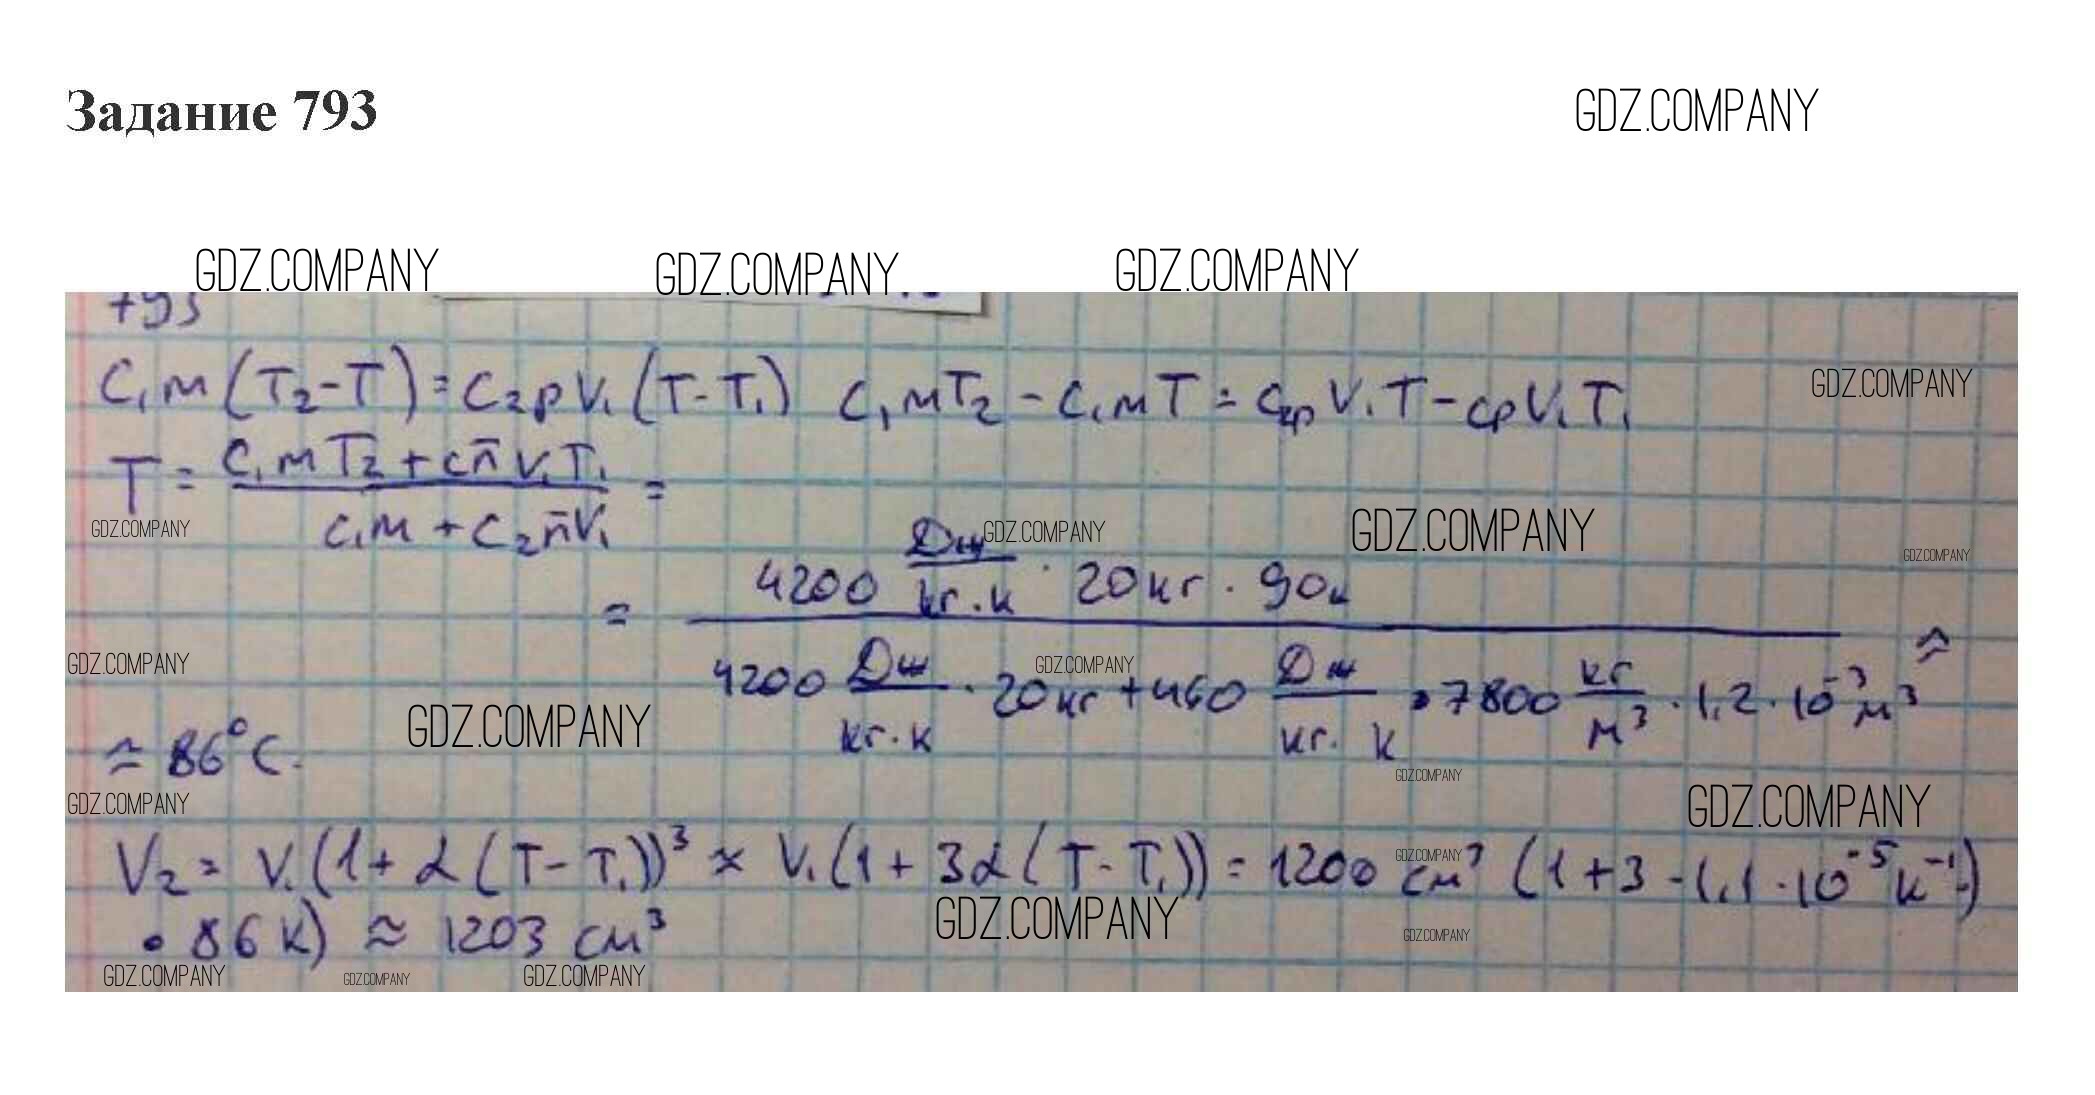 Задание 793
GDZ.COMPANY
GDZ.COMPANY GDZ.COMPANY GDZ.COMPANY
793
C₁м(T₂-T)=C₂ρV₁(T-T₁) C₁мT₂-C₁мT=C₂ρV₁T-CρV₁T₁
GDZ.COMPANY
T = (C₁мT₂+Cп̄V₁T₁)/(C₁м+C₂п̄V₁) =
GDZ.COMPANY GDZ.COMPANY GDZ.COMPANY GDZ.COMPANY
= (4200 Дж/кг·к · 20кг · 90к)/(4200 Дж/кг·к · 20кг + 460 Дж/кг·к · 7800 кг/м³ · 1,2·10⁻³м³) ≈
GDZ.COMPANY GDZ.COMPANY
GDZ.COMPANY
≈ 86°C.
GDZ.COMPANY
GDZ.COMPANY GDZ.COMPANY
V₂= V₁(1+α(T-T₁))³ ≈ V₁(1+3α(T-T₁))=1200 см³ (1+3-1,1·10⁻⁵к⁻¹·)
GDZ.COMPANY
·86к) ≈ 1203 см³
GDZ.COMPANY GDZ.COMPANY
GDZ.COMPANY GDZ.COMPANY GDZ.COMPANY